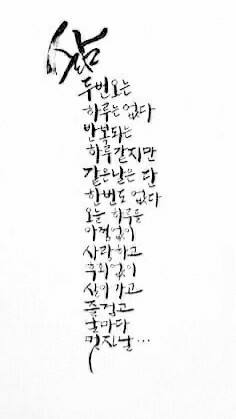 삶
두번 오는
하루는 없다
반복되는
하루 같지만
같은 날은 단
한번도 없다
오늘 하루를
아낌없이
사랑하고
후회없이
살아가고
즐겁고
날마다
멋진날...